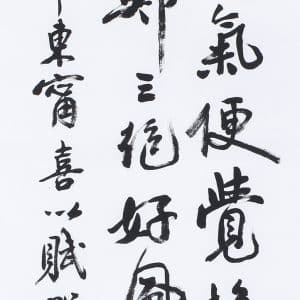 氣便覺
鄭三絕好風
東甯喜以賦